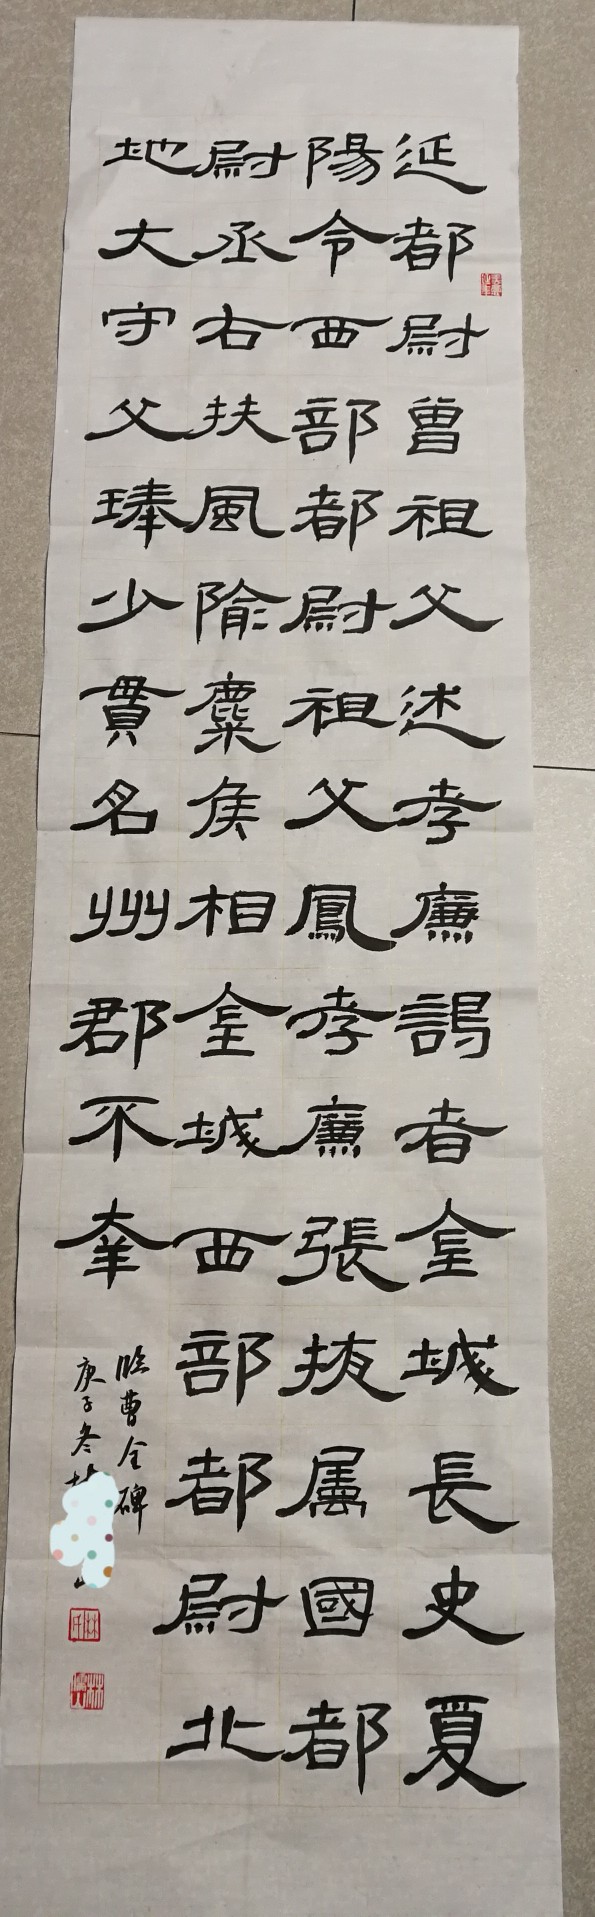 延都尉曾祖父述孝廉謁者金城長史夏
陽令西部都尉祖父鳳孝廉張掖属國都
尉丞右扶風隃麋侯相金城西部都尉北
地大守父琫少貫名州郡不幸
臨曹全碑
庚子冬